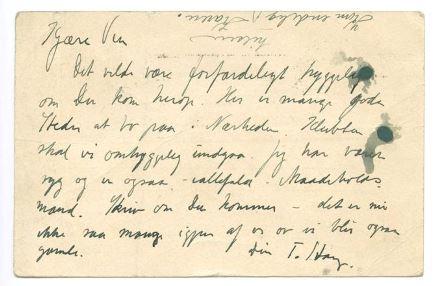 Kjære Ven
Det vilde være forfærdeligt hyggelig
om Du kom herop. Her er mange gode
Steder at bo paa i Nærheden. Klubben
skal vi omhyggelig undgaa. Jeg har været
syg og er ogsaa - iallefald - Maadeholds
mand. Skriv om Du kommer - det er nu
ikke saa mange igjen af os og vi blir ogsaa
gamle. Din T.
hilsen